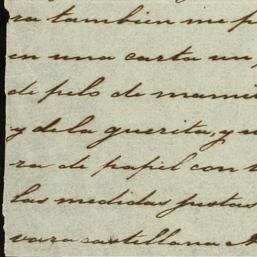 ra tambien me p
en una carta un
de pelo de mami
y de la guerita, y u
ra de papel con
las medidas justas
vara castellana